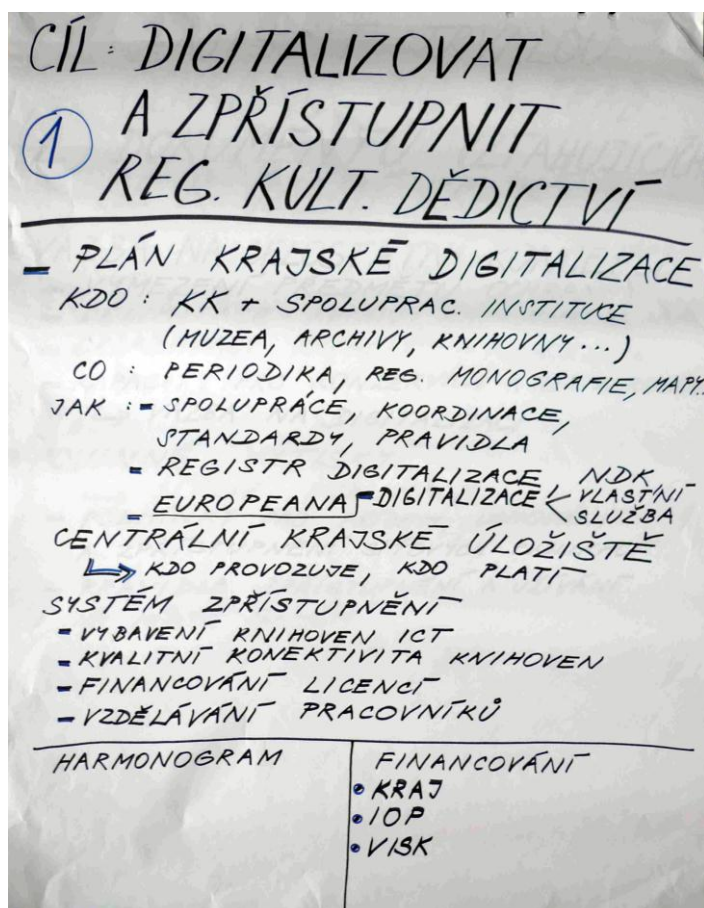 CÍL: DIGITALIZOVAT
1 A ZPŘÍSTUPNIT
REG. KULT. DĚDICTVÍ
- PLÁN KRAJSKÉ DIGITALIZACE
KDO: KK + SPOLUPRAC. INSTITUCE
(MUZEA, ARCHIVY, KNIHOVNY...)
CO: PERIODIKA, REG. MONOGRAFIE, MAPY..
JAK: - SPOLUPRÁCE, KOORDINACE,
STANDARDY, PRAVIDLA
- REGISTR DIGITALIZACE NDK
- EUROPEANA - DIGITALIZACE < VLASTNÍ
SLUŽBA
CENTRÁLNÍ KRAJSKÉ ÚLOŽIŠTĚ
↳ KDO PROVOZUJE, KDO PLATÍ
SYSTÉM ZPŘÍSTUPNĚNÍ
- VYBAVENÍ KNIHOVEN ICT
- KVALITNÍ KONEKTIVITA KNIHOVEN
- FINANCOVÁNÍ LICENCÍ
- VZDĚLÁVÁNÍ PRACOVNÍKŮ
HARMONOGRAM
FINANCOVÁNÍ
• KRAJ
• IOP
• VISK